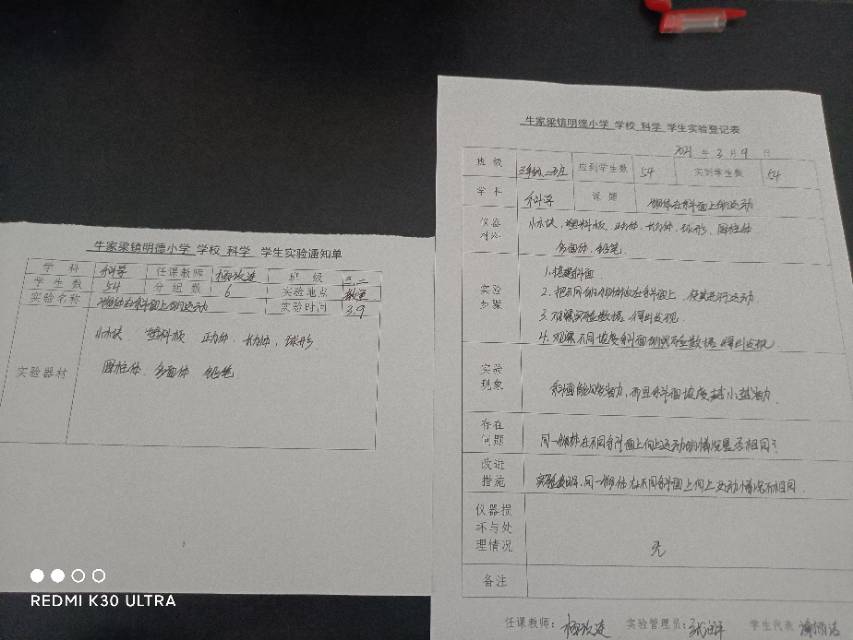 牛家梁镇明德小学 学校 科学 学生实验通知单
学科 科学 任课教师 班级 三.二
学生数 54 分组数 6 实验地点 教室
实验名称 物体在斜面上的运动 实验时间 3.9
实验器材
小木块 塑料板 正方体 长方体, 球形
圆柱体, 多面体 铅笔
牛家梁镇明德小学 学校 科学 学生实验登记表
2021 年 3 月 9 日
班级 三年级二班 应到学生数 54 实到学生数 54
学科 科学 课题 物体在斜面上的运动
小木块, 塑料板, 正方体, 长方体, 球形, 圆柱体
多面体, 铅笔
实验步骤
1. 搭建斜面
2. 把不同的物体放在斜面上, 使其进行运动.
3. 观察实验数据, 得出发现.
4. 观察不同坡度斜面测试实验数据 得出发现
实验现象
斜面能够省力, 而且斜面坡度越小越省力.
存在问题
同一物体在不同斜面上向上运动的情况是否相同?
改进措施
实验表明, 同一物体在不同斜面上向上运动情况不相同.
仪器损坏与处理情况
无
备注
任课教师: 实验管理员: 学生代表
REDMI K30 ULTRA